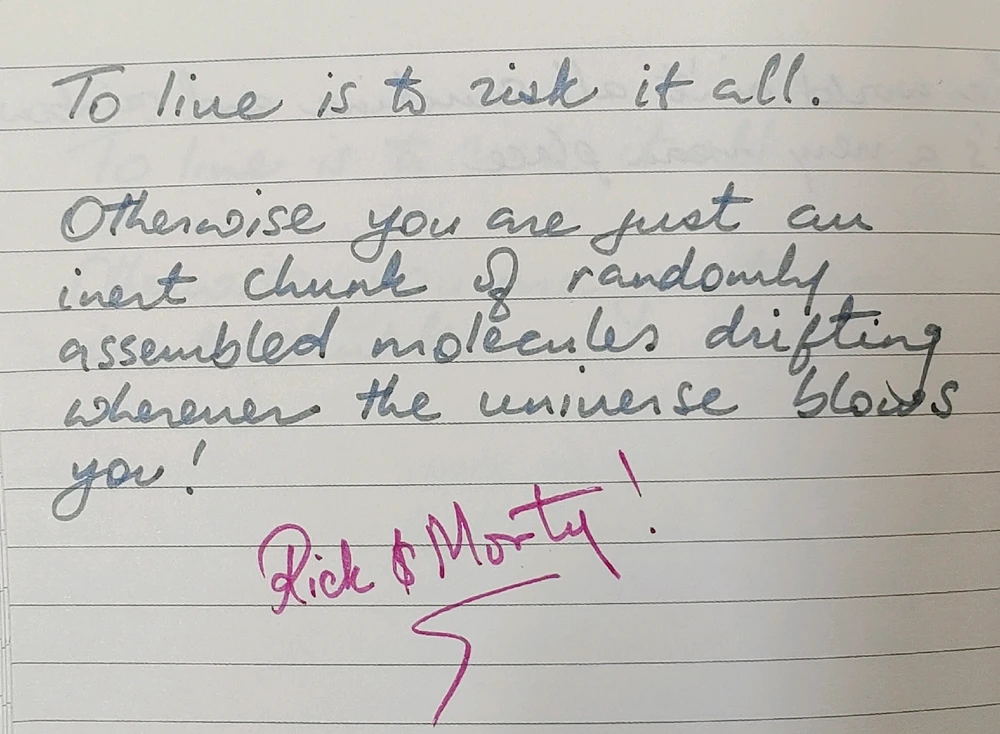 To live is to risk it all.
Otherwise you are just an
inert chunk of randomly
assembled molecules drifting
wherever the universe blows
you!
Rick & Morty!